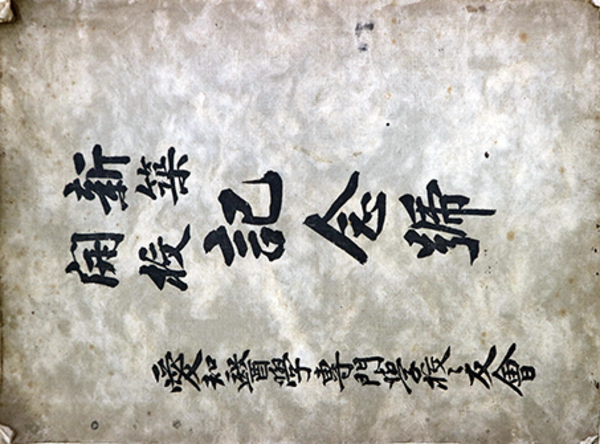 新築
開校
記念號
愛知醫學專門學校〻友會